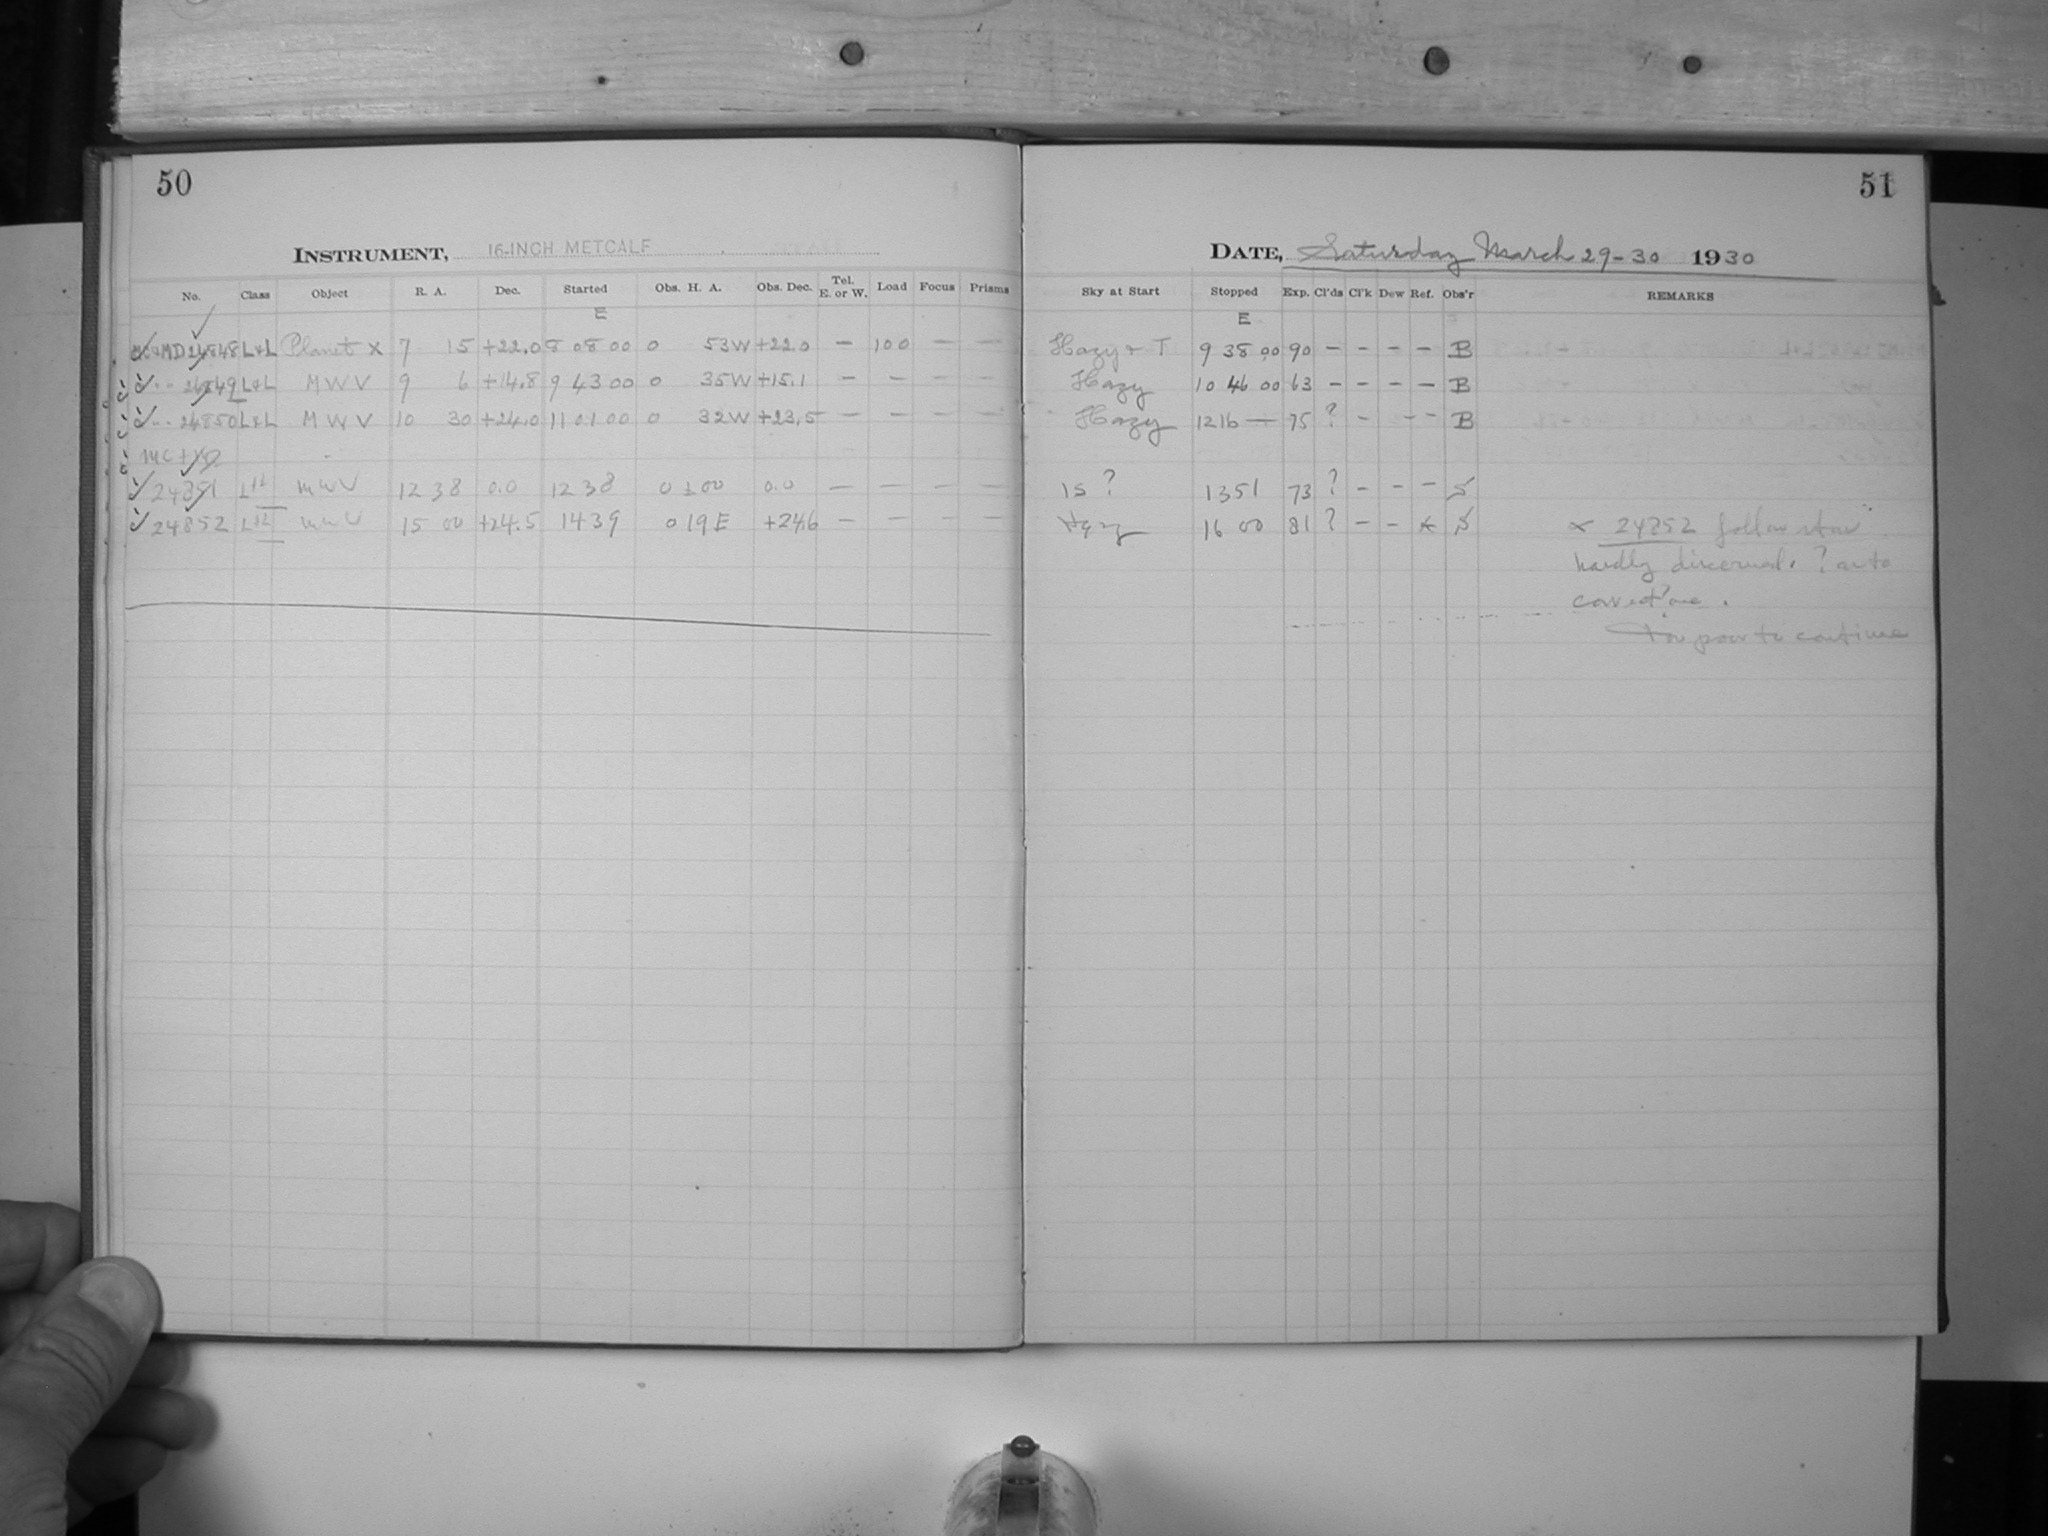 50
INSTRUMENT, 16-INCH METCALF
No. Class Object R. A. Dec. Started Obs. H. A. Obs. Dec. Tel. E. or W. Load Focus Prisms
E
MD 24848 L+L Planet X 7 15 +22.0 8 08 00 0 53W +22.0 — 100 — —
24849 L+L MWV 9 6 +14.8 9 43 00 0 35W +15.1 — — — —
24850 L+L MWV 10 30 +24.0 11 01 00 0 32W +23.5 — — — —
MC +
24851 MWV 12 38 0.0 12 38 0 ± 00 0.0 — — — —
24852 MWV 15 00 +24.5 14 39 0 19 E +24.6 — — — —
51
DATE, Saturday March 29-30 1930
Sky at Start Stopped Exp. Cl'ds Cl'k Dew Ref. Obs'r REMARKS
E
Hazy + T 9 38 00 90 — — — — B
Hazy 10 46 00 63 — — — — B
Hazy 12 16 — 75 ? — — — B
15 ? 13 51 73 ? — — — S
Hazy 16 00 81 ? — — × S × 24852 follow star
hardly discerned. ? as to
correct
Too poor to continue